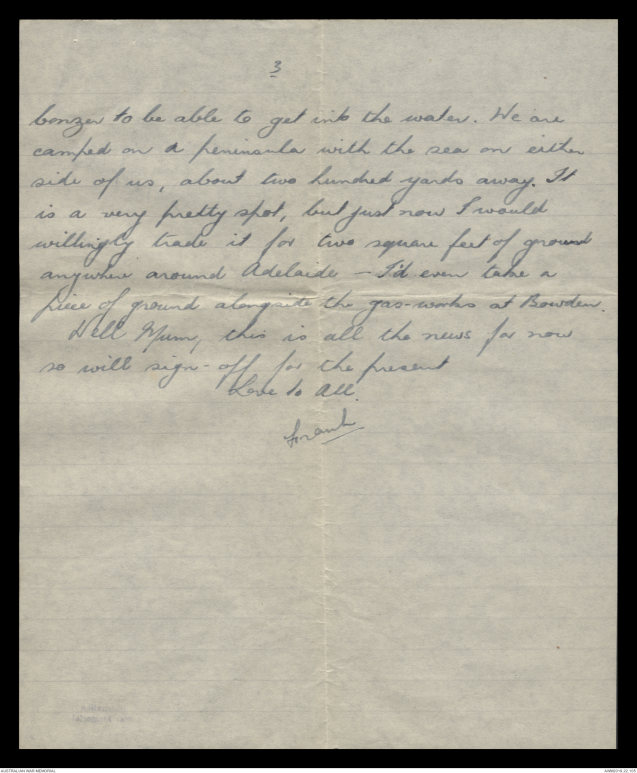 3
bonzer to be able to get into the water. We are
camped on a peninsula with the sea on either
side of us, about two hundred yards away. It
is a very pretty spot, but just now I would
willingly trade it for two square feet of ground
anywhere around Adelaide – I'd even take a
piece of ground alongside the gas-works at Bowden.
Well Mum, this is all the news for now
so will sign-off for the present
Love to All.
Frank
AUSTRALIAN WAR MEMORIAL